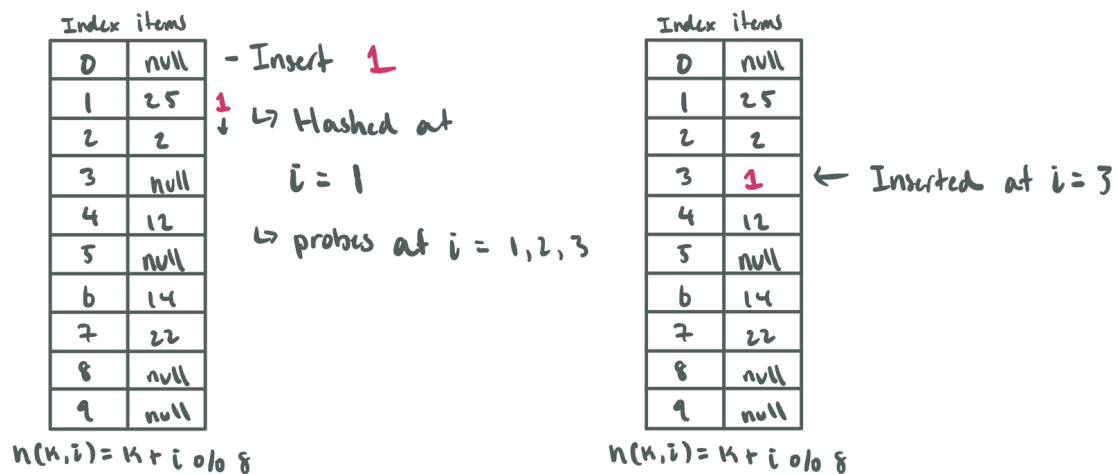 Index items
0 null
1 25
2 2
3 null
4 12
5 null
6 14
7 22
8 null
9 null
h(k,i) = k + i % 8
- Insert 1
1
↓
↳ Hashed at
i = 1
↳ probes at i = 1, 2, 3
Index items
0 null
1 25
2 2
3 1
4 12
5 null
6 14
7 22
8 null
9 null
h(k,i) = k + i % 8
← Inserted at i = 3